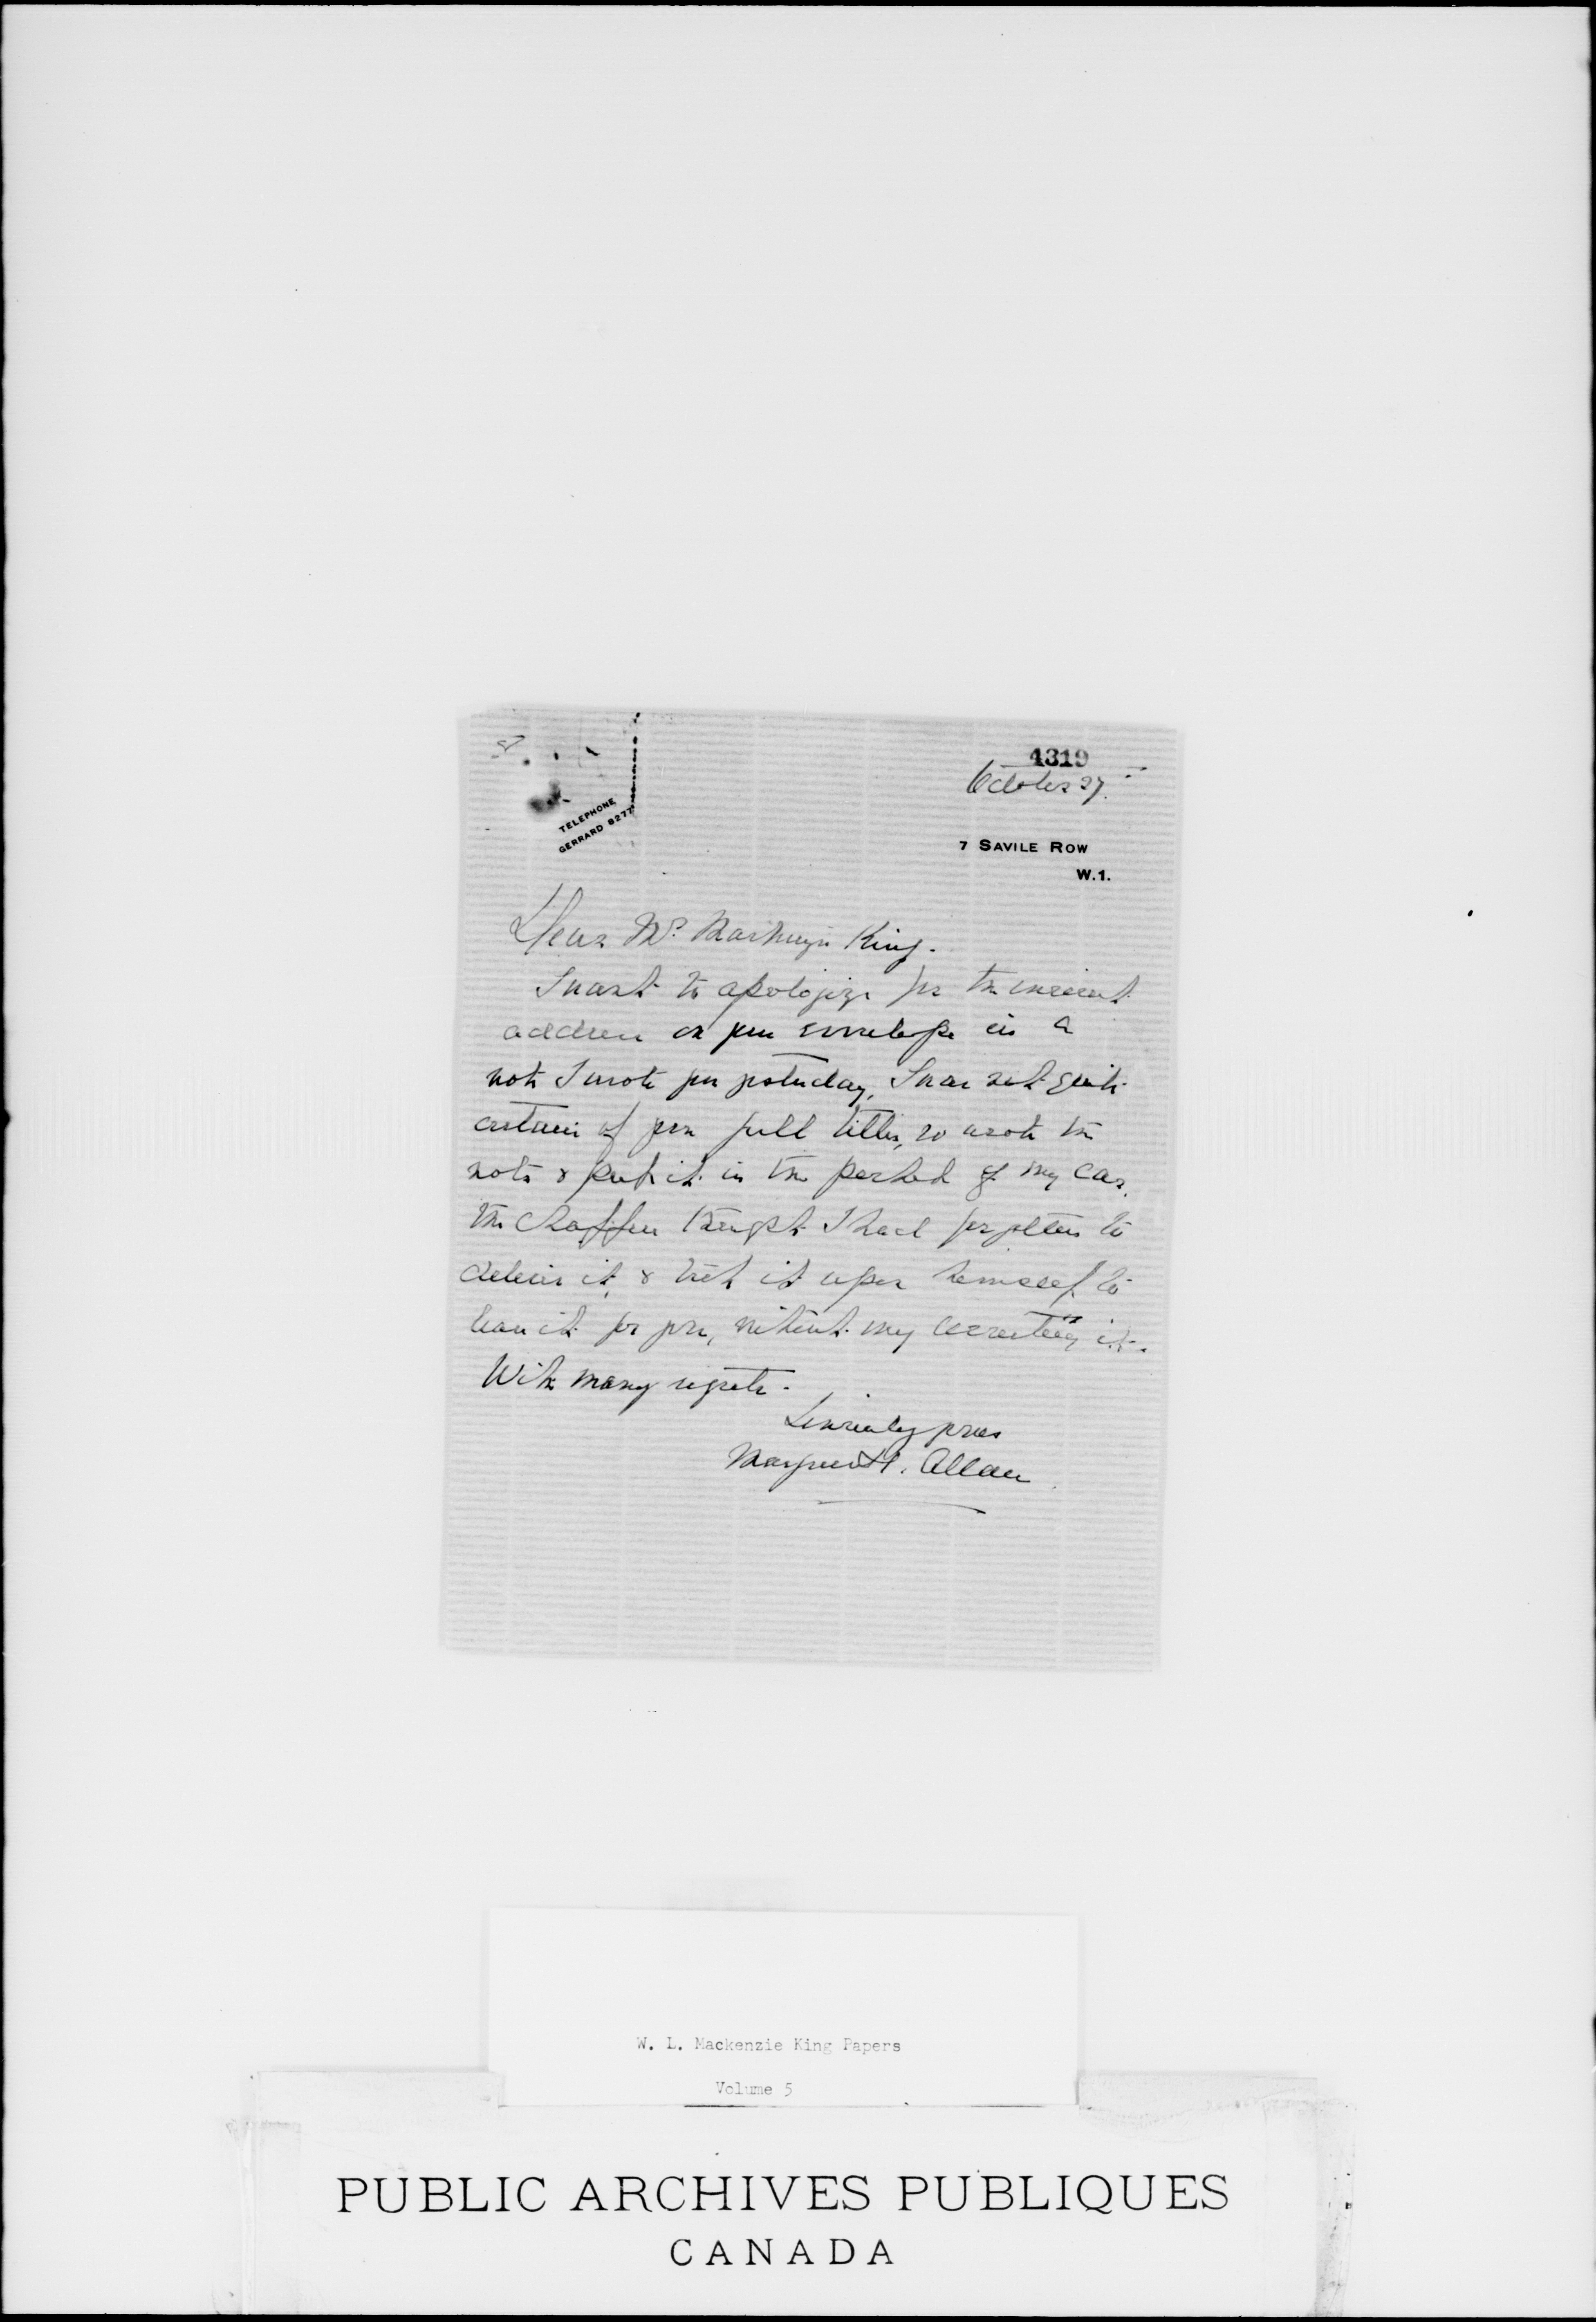 4319
October 27.
TELEPHONE
GERRARD 8277
7 SAVILE ROW
W.1.
Dear Mr. Mackenzie King.
I want to apologize for the incorrect
address on your envelope in a
note I wrote you yesterday, I was not quite
certain of your full titles, so wrote the
note & put it in the pocket of my car.
the chaffeur thought I had forgotten to
deliver it, & took it upon himself to
leave it for you, without my correcting it.
With many regrets.
Sincerely yours
Marguerite Allan
W. L. Mackenzie King Papers
Volume 5
PUBLIC ARCHIVES PUBLIQUES
CANADA